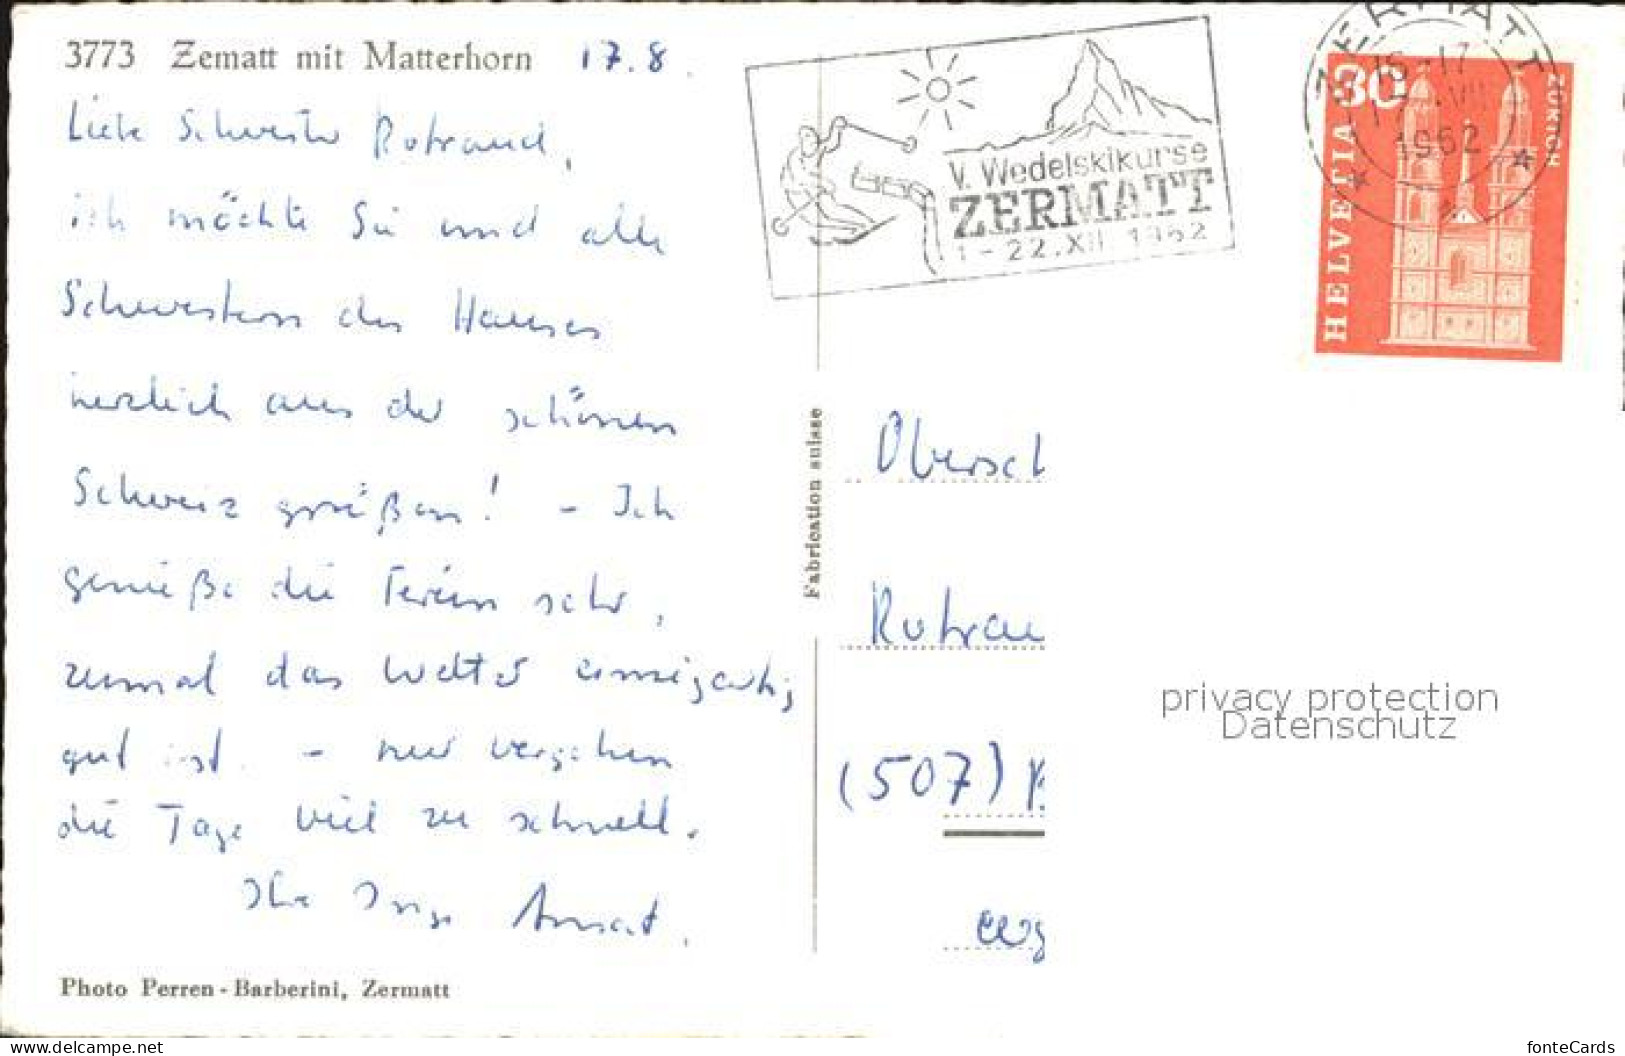 3773 Zematt mit Matterhorn 17.8.
Liebe Schwester Rotraud,
ich möchte Sie und alle
Schwestern des Hauses
herzlich aus der schönen
Schweiz grüßen! - Ich
genieße die Ferien sehr,
zumal das Wetter einzigartig
gut ist. - nur vergehen
die Tage viel zu schnell.
Ihre Inge
Photo Perren-Barberini, Zermatt
Fabrication suisse
V. Wedelskikurse
ZERMATT
1-22.XII.1962
ZERMATT
16-17
1962
30
HELVETIA
ZÜRICH
Obersch
Rotrau
(507)
privacy protection
Datenschutz
delcampe.net
fonteCards